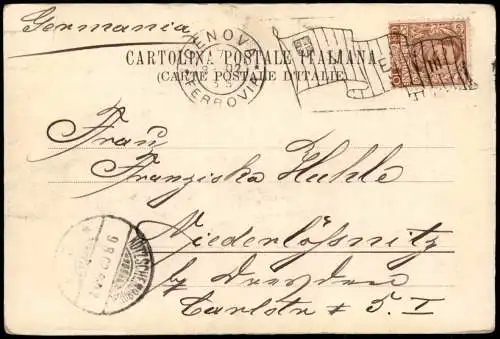 Germania
GENOVA
FERROVIA
CARTOLINA POSTALE ITALIANA
(CARTE POSTALE D'ITALIE)
Frau
Franziska Huhle
Niederlößnitz
by Dresden
Carlstr # 5. I